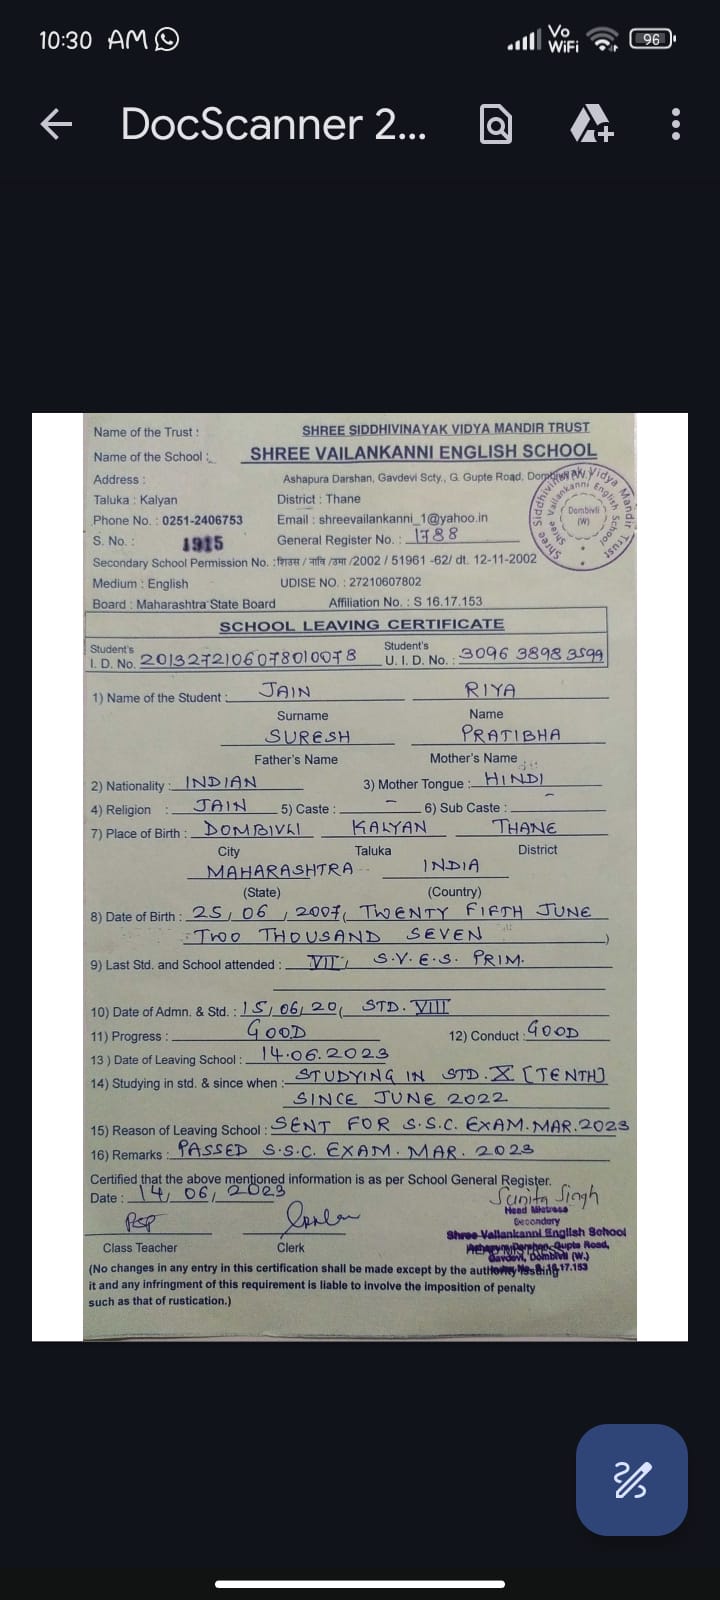 10:30 AM
Vo
WiFi
96
DocScanner 2...
Name of the Trust : SHREE SIDDHIVINAYAK VIDYA MANDIR TRUST
Name of the School : SHREE VAILANKANNI ENGLISH SCHOOL
Address : Ashapura Darshan, Gavdevi Scty., G. Gupte Road, Dombivli (W.)
Taluka : Kalyan District : Thane
Phone No. : 0251-2406753 Email : shreevailankanni_1@yahoo.in
S. No. : 1915 General Register No. : 1788
Secondary School Permission No. : शिउस / नावि /उमा /2002 / 51961 -62/ dt. 12-11-2002
Medium : English UDISE NO. : 27210607802
Board : Maharashtra State Board Affiliation No. : S 16.17.153
Shree Siddhivinayak Vidya Mandir Trust
Shree Vailankanni English School
Dombivli
(W)
SCHOOL LEAVING CERTIFICATE
Student's I. D. No. 2013272106078010078 Student's U. I. D. No. : 3096 3898 3599
1) Name of the Student : JAIN RIYA
Surname Name
SURESH PRATIBHA
Father's Name Mother's Name
2) Nationality : INDIAN 3) Mother Tongue : HINDI
4) Religion : JAIN 5) Caste : - 6) Sub Caste : -
7) Place of Birth : DOMBIVLI KALYAN THANE
City Taluka District
MAHARASHTRA INDIA
(State) (Country)
8) Date of Birth : 25/06/2007( TWENTY FIFTH JUNE
TWO THOUSAND SEVEN )
9) Last Std. and School attended : VII, S.V.E.S. PRIM.
10) Date of Admn. & Std. : 15/06/20( STD. VIII
11) Progress : GOOD 12) Conduct : GOOD
13 ) Date of Leaving School : 14.06.2023
14) Studying in std. & since when : STUDYING IN STD. X [TENTH]
SINCE JUNE 2022
15) Reason of Leaving School : SENT FOR S.S.C. EXAM.MAR.2023
16) Remarks : PASSED S.S.C. EXAM. MAR. 2023
Certified that the above mentioned information is as per School General Register.
Date : 14/06/2023
Sunita Singh
Head Mistress
Secondary
Shree Vailankanni English School
Ashapura Darshan, Gupte Road,
Gavdevi, Dombivli (W.)
Class Teacher Clerk
(No changes in any entry in this certification shall be made except by the authority issuing
it and any infringment of this requirement is liable to involve the imposition of penalty
such as that of rustication.)